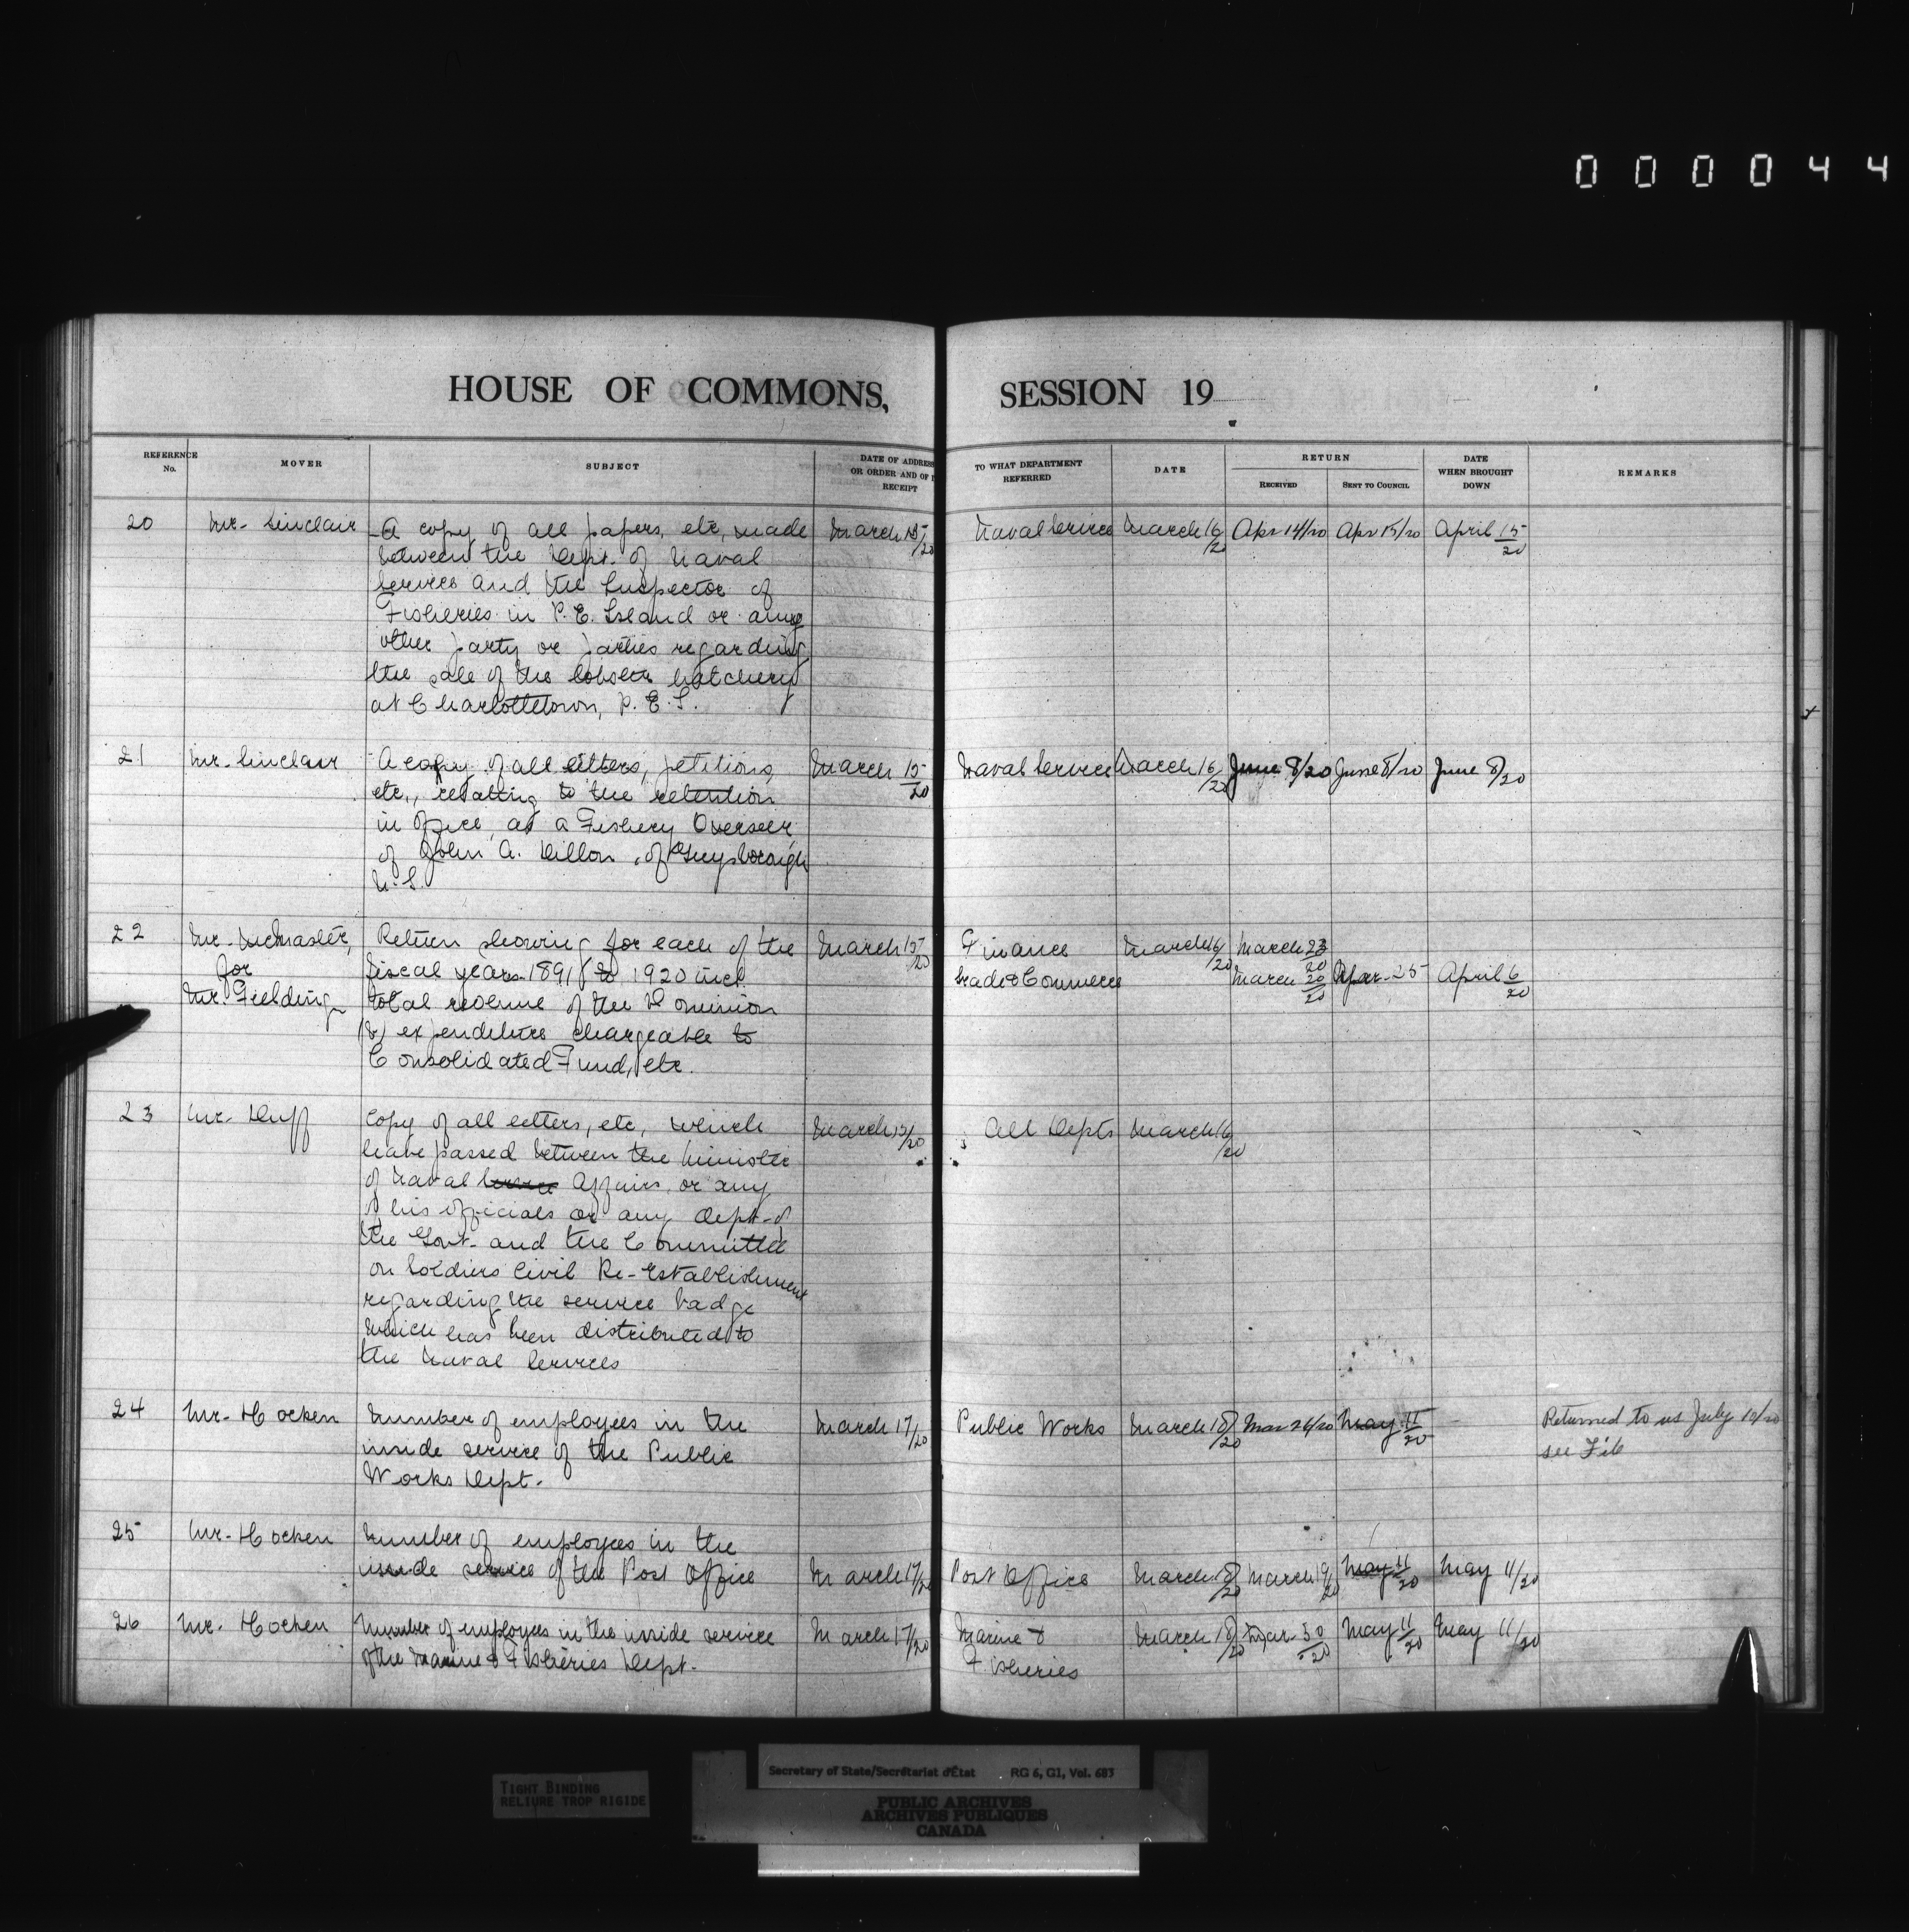 000044
HOUSE OF COMMONS, SESSION 19
REFERENCE No. MOVER SUBJECT DATE OF ADDRESS OR ORDER AND OF RECEIPT TO WHAT DEPARTMENT REFERRED DATE RETURN RECEIVED SENT TO COUNCIL DATE WHEN BROUGHT DOWN REMARKS
20 Mr. Sinclair A copy of all papers, etc, made March 15/20 Naval Service March 16/20 Apr 14/20 Apr 15/20 April 15/20
between the Dept. of Naval
Service and the Inspector of
Fisheries in P.E. Island or any
other party or parties regarding
the sale of the lobster hatchery
at Charlottetown, P.E.I.
21 Mr. Sinclair A copy of all letters, petitions, March 15/20 Naval Service March 16/20 June 8/20 June 8/20 June 8/20
etc., relating to the retention
in office, as a Fishery Overseer
of John A. Dillon, of Guysborough
N.S.
22 Mr. McMaster, Return showing for each of the March 15/20 Finance March 16/20 March 23/20
for fiscal years 1891 to 1920 incl. Trade & Commerce March 20/20 25 April 6/20
Mr. Fielding total revenue of the Dominion
(2) expenditure chargeable to
Consolidated Fund, etc.
23 Mr. Duff Copy of all letters, etc, which March 15/20 All Depts March 16/20
have passed between the Minister
of Naval Service Affairs, or any
of his officials or any Dept. of
the Govt. and the Committee
on Soldiers Civil Re-Establishment
regarding the service badge
which has been distributed to
the Naval Services
24 Mr. Hocken Number of employees in the March 17/20 Public Works March 18/20 Mar 26/20 May 11/20 Returned to us July 10/20
inside service of the Public see File
Works Dept.
25 Mr. Hocken Number of employees in the
inside service of the Post Office March 17/20 Post Office March 18/20 March 19/20 May 11/20 May 11/20
26 Mr. Hocken Number of employees in the inside service March 17/20 Marine & March 18/20 Mar. 30/20 May 11/20 May 11/20
of the Marine & Fisheries Dept. Fisheries
TIGHT BINDING
RELIURE TROP RIGIDE
Secretary of State/Secrétariat d'État RG 6, G1, Vol. 683
PUBLIC ARCHIVES
ARCHIVES PUBLIQUES
CANADA